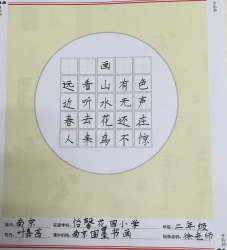 画
远看山有色
近听水无声
春去花还在
人来鸟不惊
南京 怡馨花园小学 二年级
南京国墨书画 徐老师